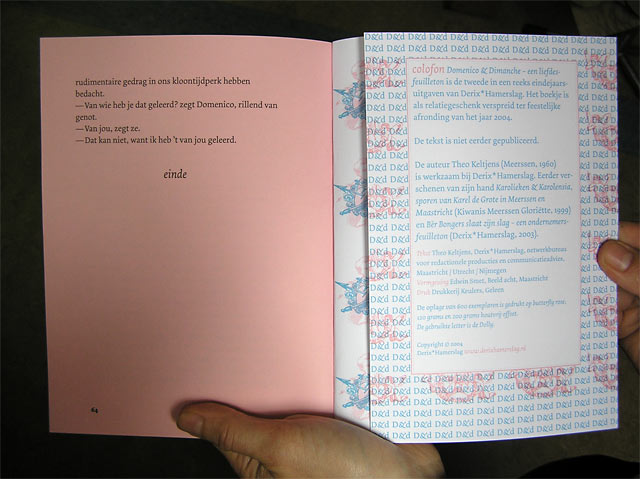 rudimentaire gedrag in ons kloontijdperk hebben
bedacht.
— Van wie heb je dat geleerd? zegt Domenico, rillend van
genot.
— Van jou, zegt ze.
— Dat kan niet, want ik heb 't van jou geleerd.
einde
64
colofon Domenico & Dimanche – een liefdes-
feuilleton is de tweede in een reeks eindejaars-
uitgaven van Derix*Hamerslag. Het boekje is
als relatiegeschenk verspreid ter feestelijke
afronding van het jaar 2004.
De tekst is niet eerder gepubliceerd.
De auteur Theo Keltjens (Meerssen, 1960)
is werkzaam bij Derix*Hamerslag. Eerder ver-
schenen van zijn hand Karolieken & Karolensia,
sporen van Karel de Grote in Meerssen en
Maastricht (Kiwanis Meerssen Gloriëtte, 1999)
en Bèr Bongers slaat zijn slag – een ondernemers-
feuilleton (Derix*Hamerslag, 2003).
Tekst Theo Keltjens, Derix*Hamerslag, netwerkbureau
voor redactionele producties en communicatieadvies,
Maastricht | Utrecht | Nijmegen
Vormgeving Edwin Smet, Beeld acht, Maastricht
Druk Drukkerij Keulers, Geleen
De oplage van 600 exemplaren is gedrukt op butterfly rose,
120 grams en 200 grams houtvrij offset.
De gebruikte letter is de Dolly.
Copyright © 2004
Derix*Hamerslag www.derixhamerslag.nl